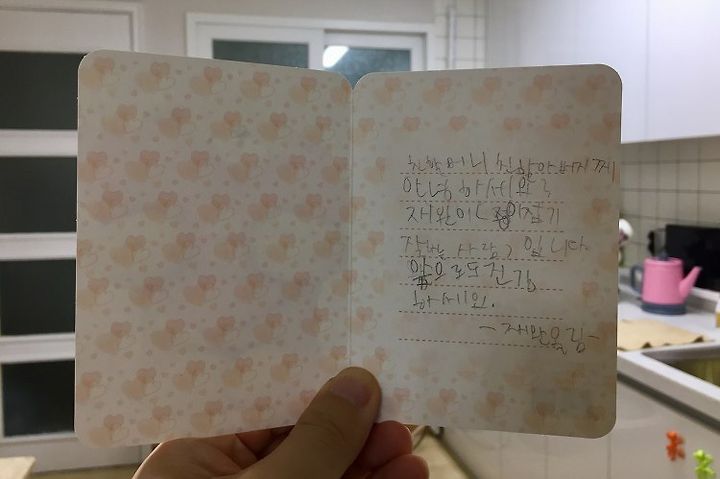 친할머니 친할아버지께
안녕하세요?
재완이 종이접기
사람 입니다
앞으로도 건강
하세요.
-재완올림-